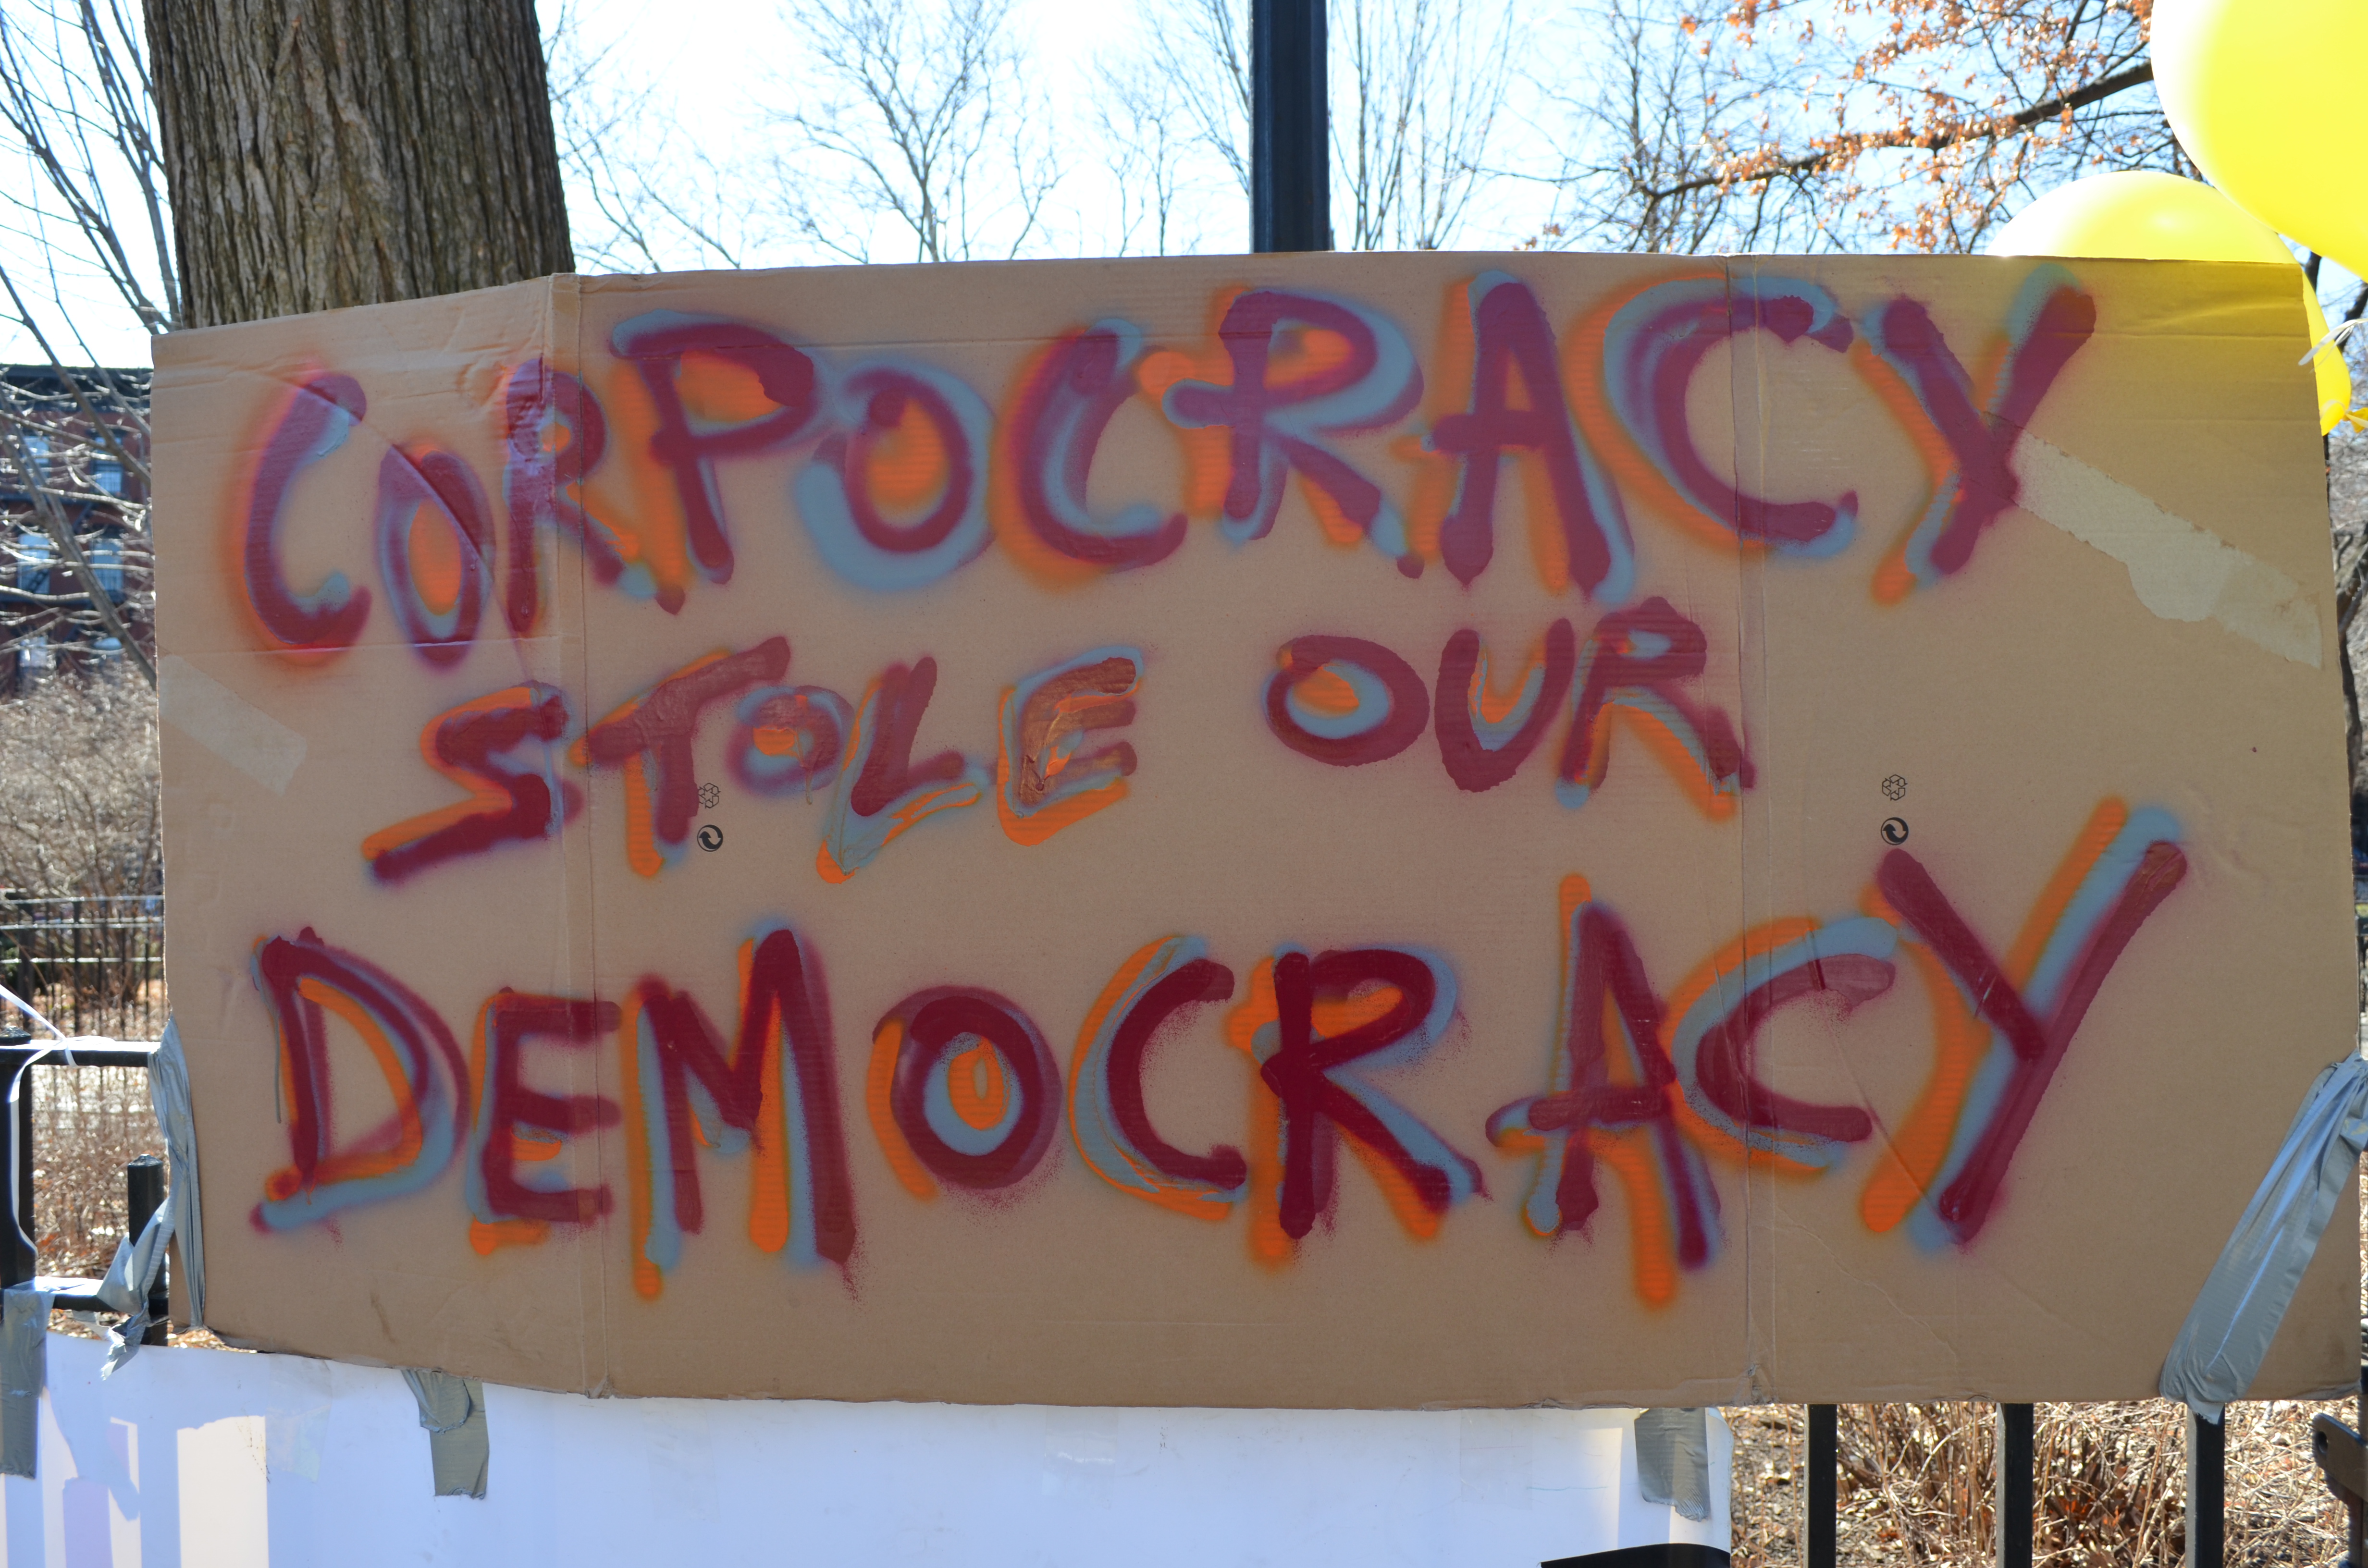 CORPOCRACY
STOLE OUR
DEMOCRACY